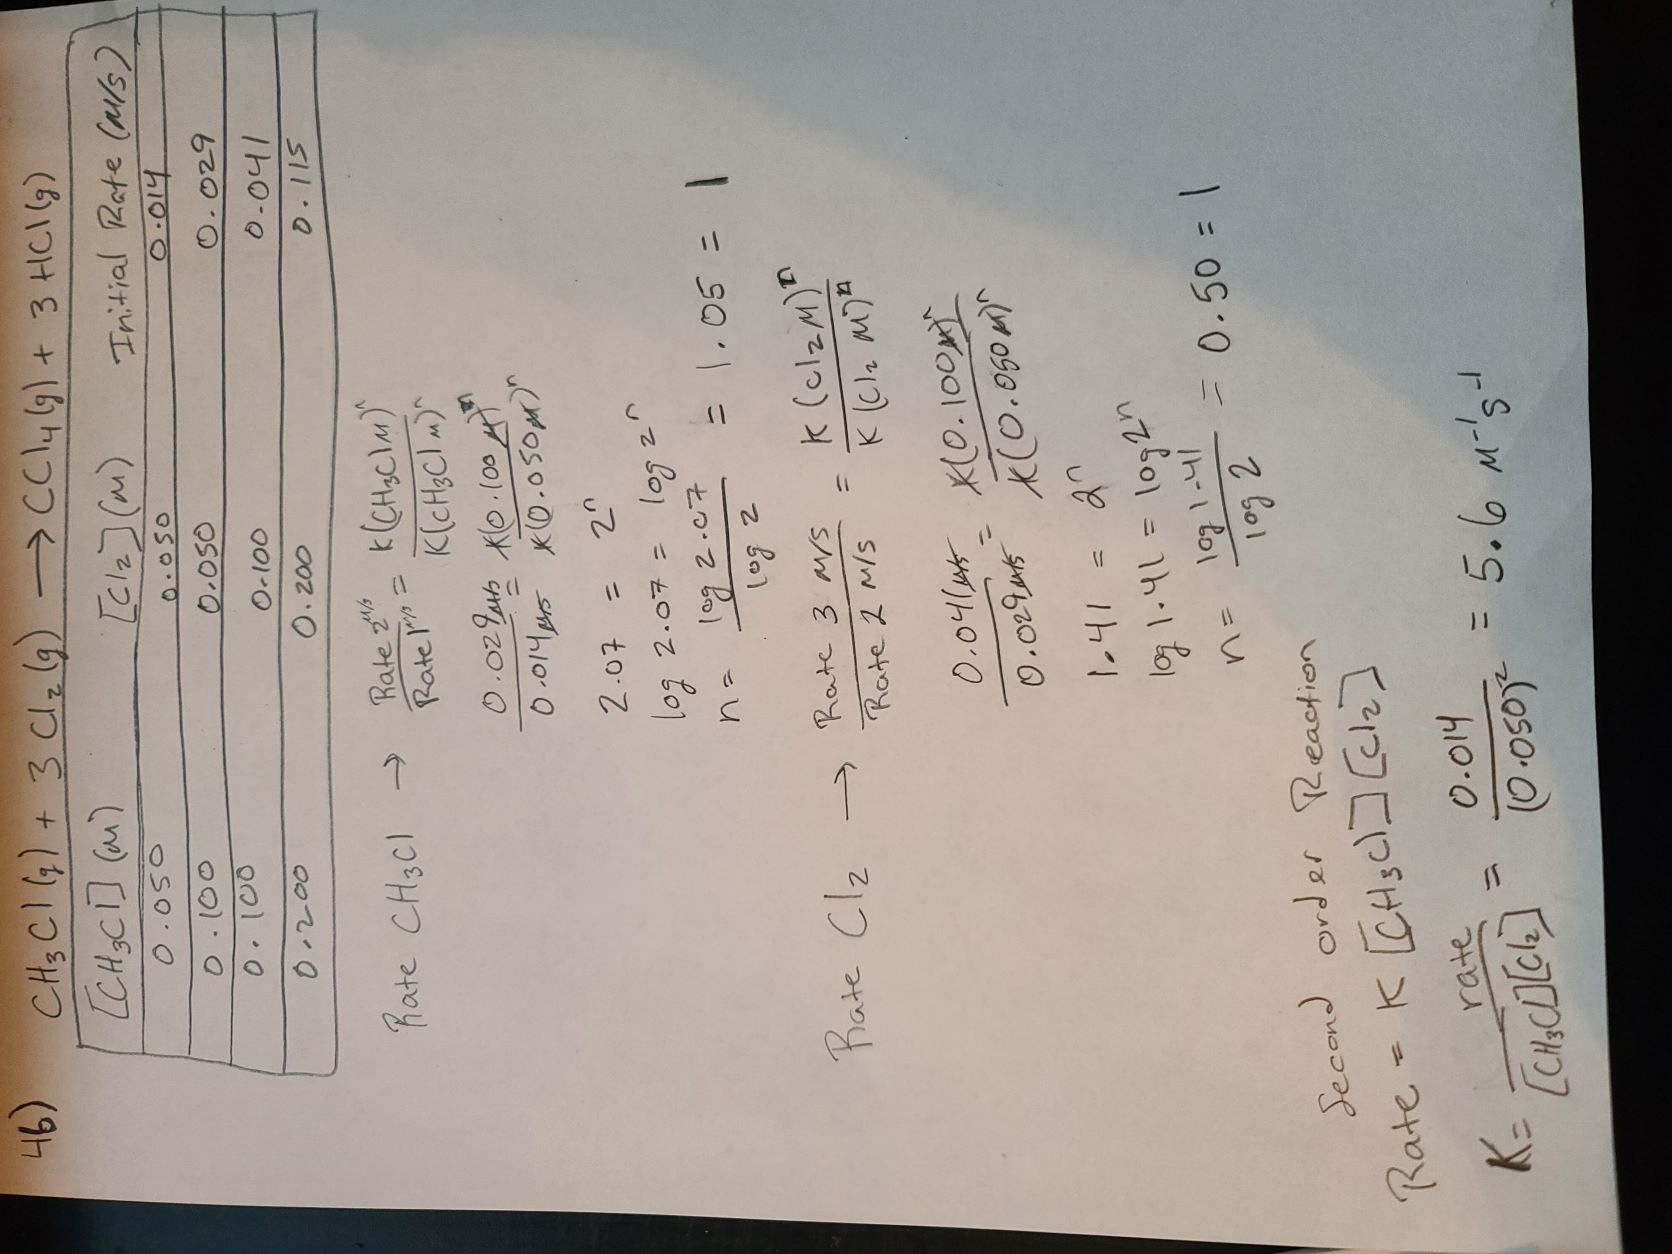 4b) CH₃Cl(g) + 3 Cl₂(g) → CCl₄(g) + 3 HCl(g)
[CH₃Cl](M) [Cl₂](M) Initial Rate (M/s)
0.050 0.050 0.014
0.100 0.050 0.029
0.100 0.100 0.041
0.200 0.200 0.115
Rate CH₃Cl → Rate 2 M/s / Rate 1 M/s = K(CH₃Cl M)ⁿ / K(CH₃Cl M)ⁿ
0.029 M/s / 0.014 M/s = K(0.100 M)ⁿ / K(0.050 M)ⁿ
2.07 = 2ⁿ
log 2.07 = log 2ⁿ
n = log 2.07 / log 2 = 1.05 = 1
Rate Cl₂ → Rate 3 M/s / Rate 2 M/s = K(Cl₂ M)ⁿ / K(Cl₂ M)ⁿ
0.041 M/s / 0.029 M/s = K(0.100 M)ⁿ / K(0.050 M)ⁿ
1.41 = 2ⁿ
log 1.41 = log 2ⁿ
n = log 1.41 / log 2 = 0.50 = 1
Second order Reaction
Rate = K [CH₃Cl][Cl₂]
K = rate / [CH₃Cl][Cl₂] = 0.014 / (0.050)² = 5.6 M⁻¹s⁻¹